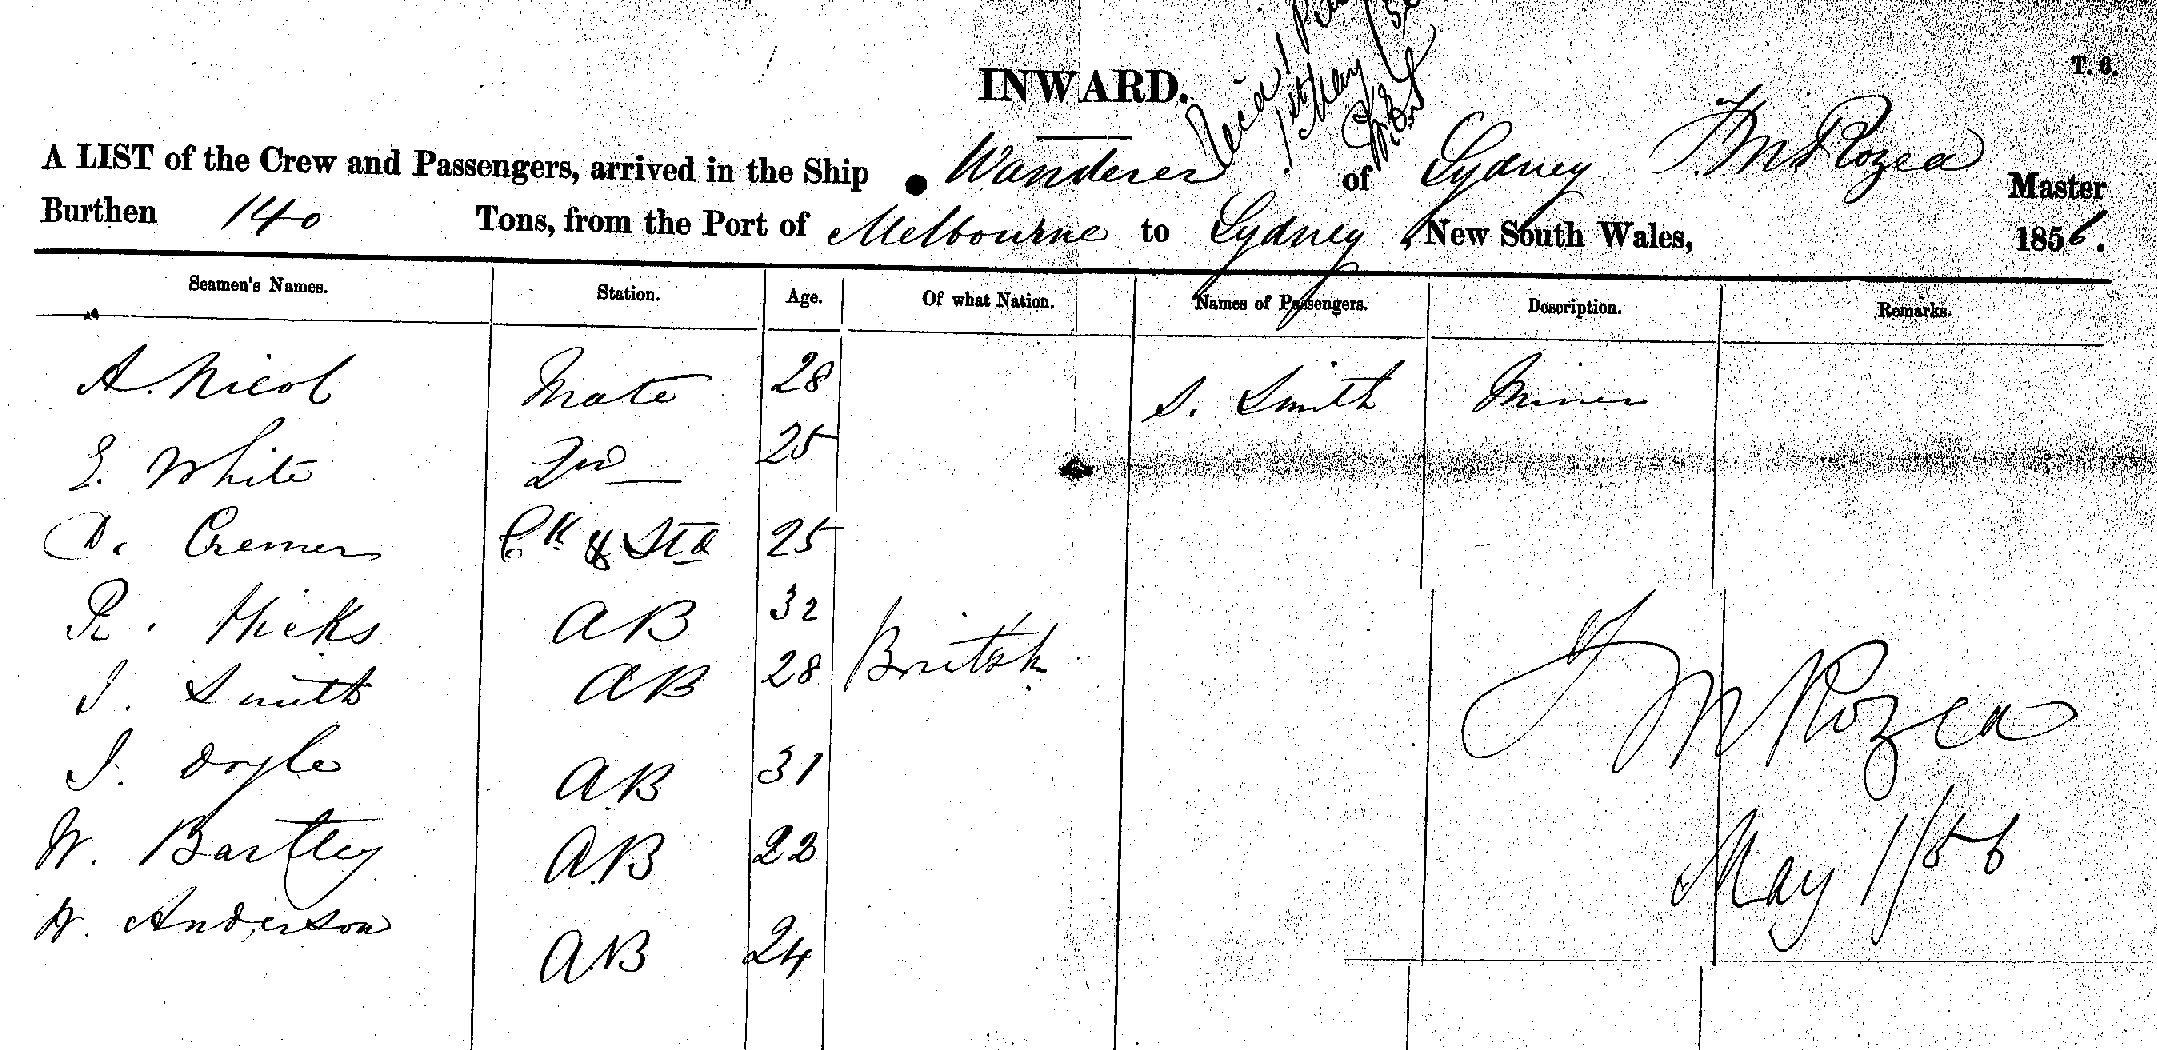 T. 6.
INWARD.
A LIST of the Crew and Passengers, arrived in the Ship Wanderer of Sydney Master
Burthen 140 Tons, from the Port of Melbourne to Sydney New South Wales, 1856.
Seamen's Names. Station. Age. Of what Nation. Names of Passengers. Description. Remarks.
A. Nicol Mate 28 S. Smith Miner
E. White 2nd — 25
D. Cremer Ck & Std 25
R. Hicks AB 32
J. Smith AB 28 British
J. Doyle AB 31
W. Bartley AB 22
W. Anderson AB 24
F M Rozea
May 1/56